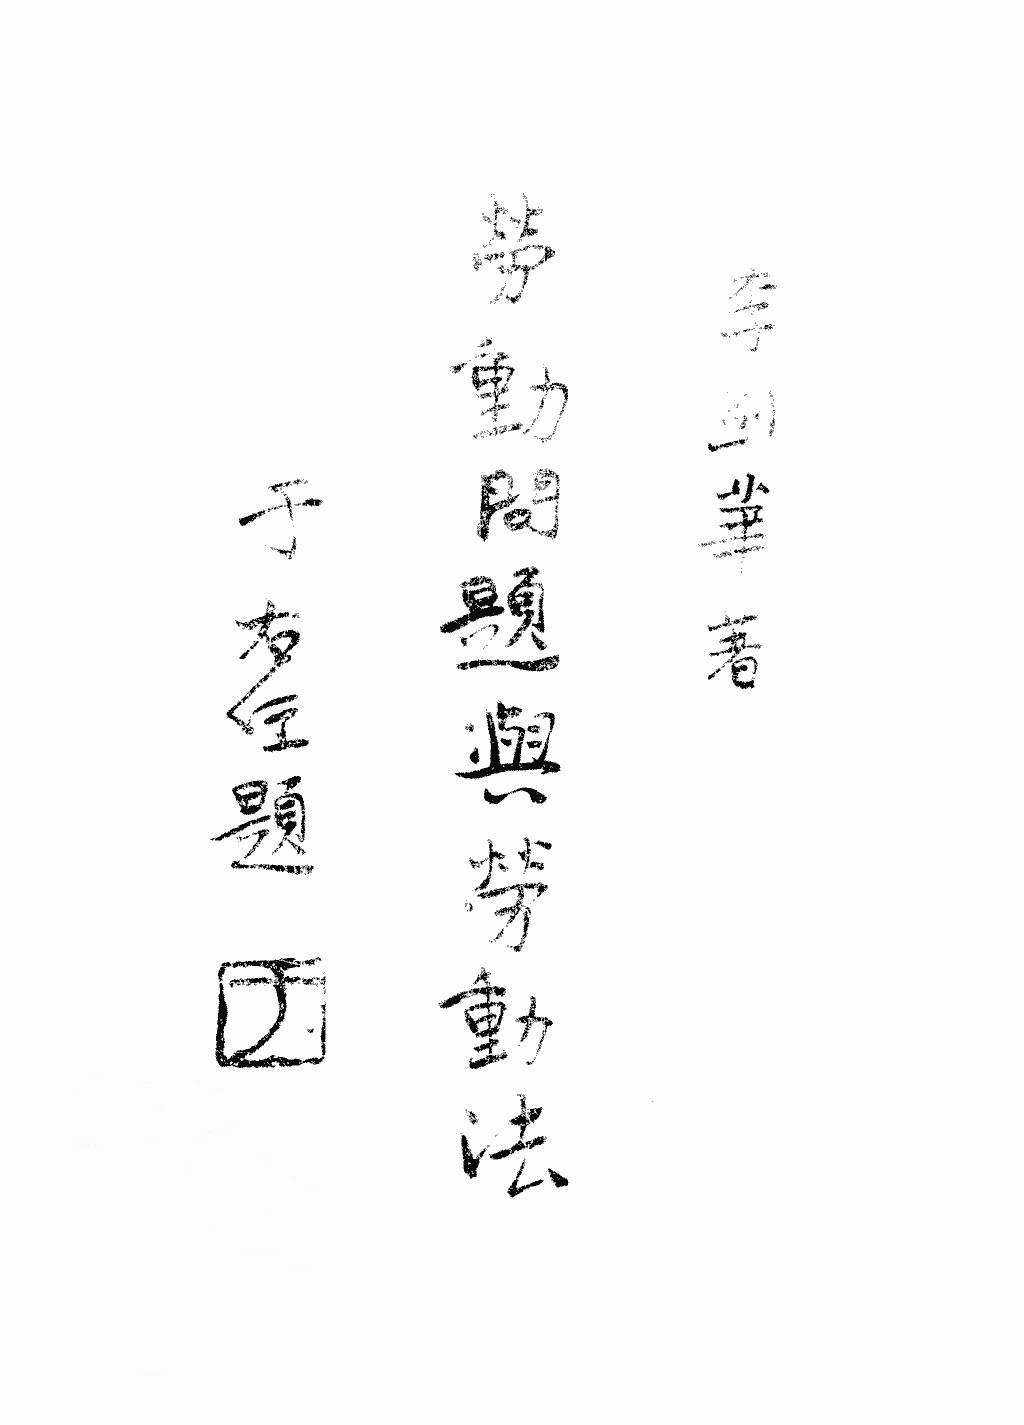 李劍華著
勞動問題與勞動法
于右任題